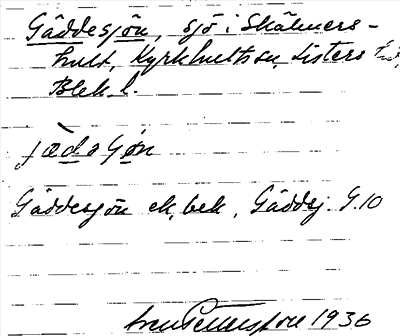 Gäddesjön, sjö i Skälmers-
hult, Kyrkhults sn, Listers hd,
Blek. l.
jædəʃøn
Gäddesjön ek. bek, Gäddsj. G.10
1936